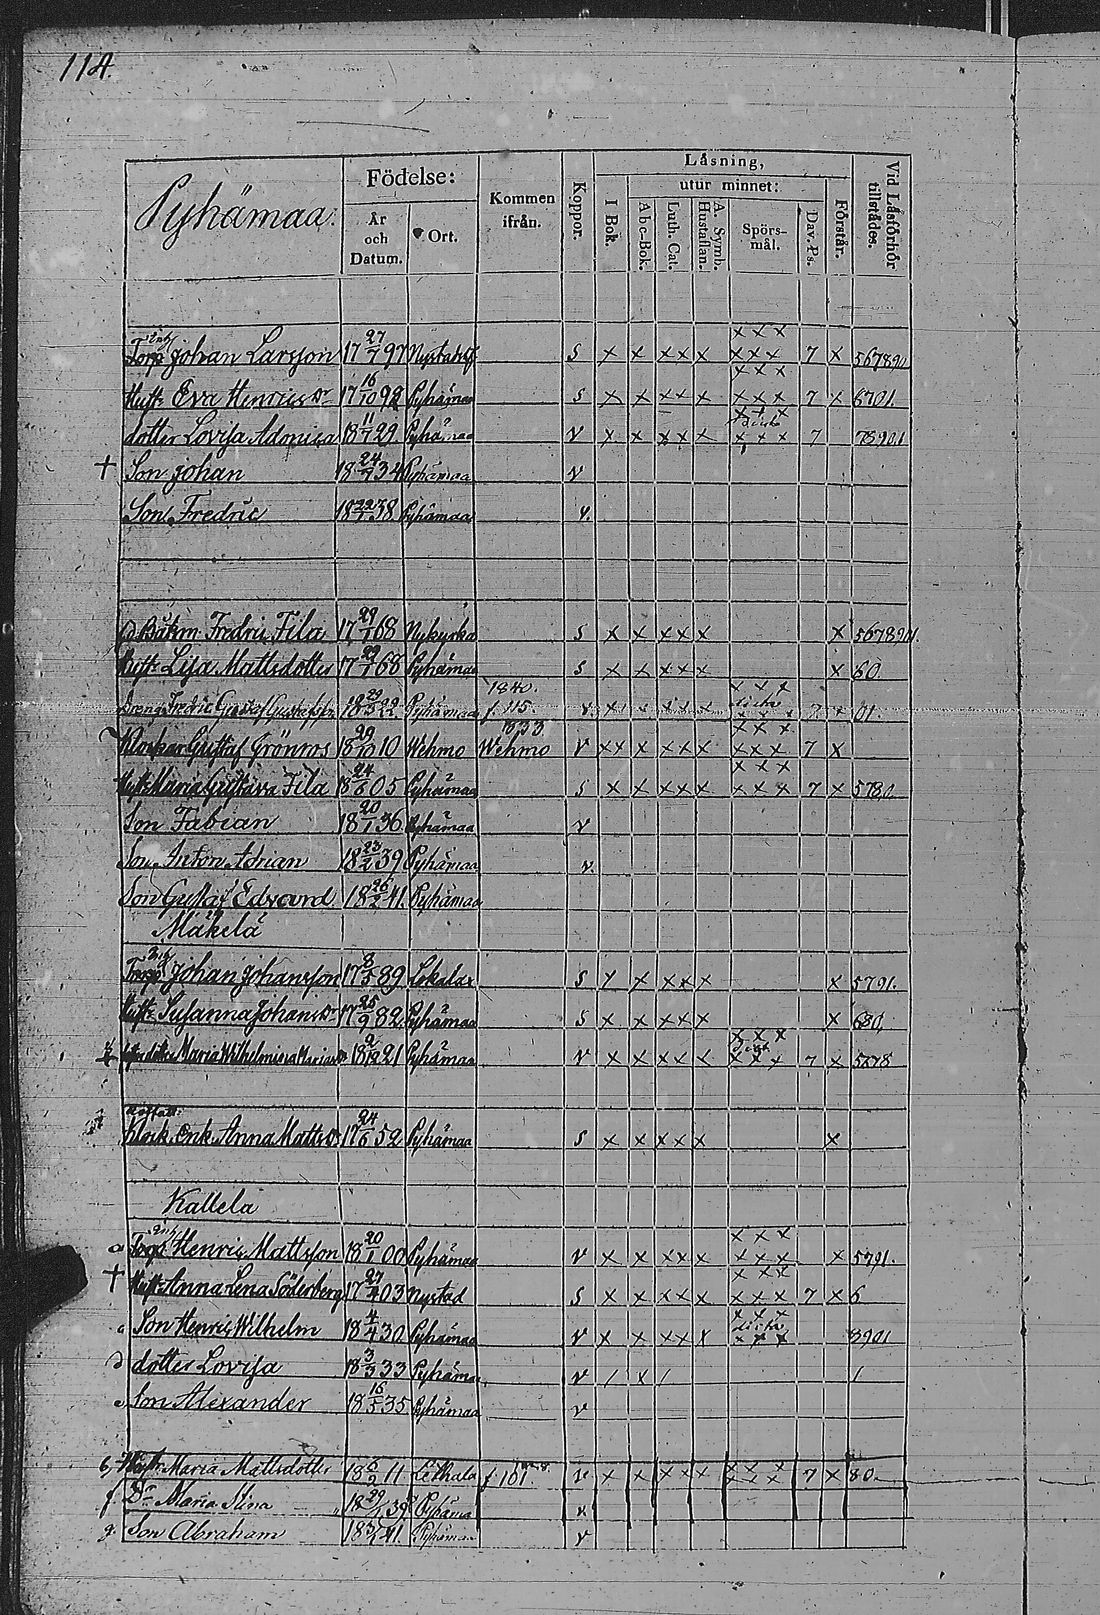 114.
Pyhämaa.
Födelse:
År och Datum.
Ort.
Kommen ifrån.
Koppor.
Läsning,
utur minnet:
I Bok.
Abc-Bok.
Luth. Cat.
A. Symb. Hustaflan.
Spörs-mål.
Dav. Ps.
Förstår.
Vid Läsförhör tillstädes.
Torp Johan Larsson 17 27/7 97 Nystad s x x xxx xxx 7 x 567890
Hust: Eva Henrics dr 17 16/10 92 Pyhämaa s x x xxx x xxx 7 x 6701.
dotter Lovisa 18 11/7 29 Pyhämaa v x x xxx x xxx 7 78901
† Son Johan 18 24/7 34 Pyhämaa v
Son Fredric 18 38 Pyhämaa v.
Fredric Fila 17 29/1 68 Nykyrka s x x xxx x x 567890
Hust: Lisa Mattsdotter 17 68 Pyhämaa s x x xxx x x 60.
Dreng Fredric Gustaf Gustafsson 18 Pyhämaa 1840. f. 115 v x x xxx x 7 x 01.
Klockar Gustaf Grönros 18 29/10 10 Wehmo 1833. Wehmo v xx x xxx x xxx 7 x
Hust: Maria Gustava Fila 18 24/6 05 Pyhämaa s x x xxx x xxx 7 x 5780
Son Fabian 18 20/1 36 Pyhämaa v
Son Anton Adrian 18 23/2 39 Pyhämaa v.
Son Gustaf Edvard 18 26/2 41 Pyhämaa
Mäkelä
Torp Johan Johansson 17 8/5 89 Lokalax s x x xxx x x 5791.
Hust: Susanna Johans dr 17 25/9 82 Pyhämaa s x x xxx x x 680.
Maria Wilhelmina 18 21 Pyhämaa v x x xxx x xxx 7 x 5678
Klock. Enk. Anna Matts dr 17 24/6 52 Pyhämaa s x x xxx x x
Kallela
a Torp Henric Mattsson 18 20/1 00 Pyhämaa v x x xxx x xxx x 5791.
† Hust: Anna Lena Söderberg 17 27/4 03 Nystad s x x xxx x xxx 7 x 6
c Son Henric Wilhelm 18 4/4 30 Pyhämaa v x x xxx x xxx 8901
d dotter Lovisa 18 3/3 33 Pyhämaa v / x / /
e Son Alexander 18 16/5 35 Pyhämaa v
b, Hustr Maria Mattsdotter 18 6/2 11 Lethala f. 101 x x xxx x xxx 7 x 80
f. Dr Maria Stina 18 29/ 39 Pyhämaa v
g. Son Abraham 18 41. Pyhämaa v